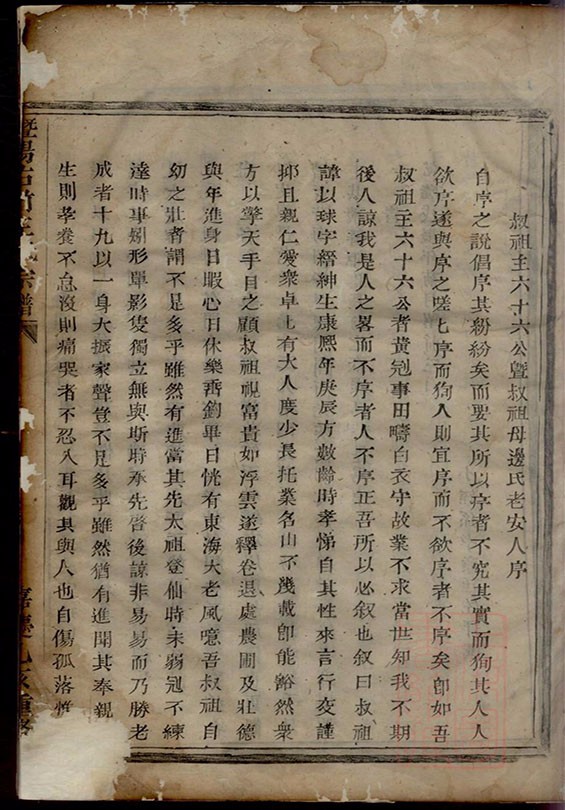 叔祖主六十六公暨叔祖母邊氏老安人序
自序之說倡序其紛紛矣而要其所以序者不究其實而狥其人人
欲序遂與序之嗟乚序而狥人則宜序而不欲序者不序矣卽如吾
叔祖主六十六公者黃冠事田疇白衣守故業不求當世知我不期
後人諒我是人之畧而不序者人不序正吾所以必叙也叙曰叔祖
諱以球字縉紳生康熙年庚辰方數齡時孝悌自其性來言行交謹
抑且親仁愛衆卓乚有大人度少長托業名山不幾載卽能豁然衆
方以擎天手目之顧叔祖視富貴如浮雲遂釋卷退處農圃及壯德
與年進身日暇心日休樂耑釣畢日恍有東海大老風噫吾叔祖自
幼之壯者謂不是多乎雖然有進當其先大祖登仙時未弱冠不練
達時事矧形單影隻獨立無與斯時承先啓後諒非易易而乃勝老
成者十九以一身大振家聲豈不足多乎雖然猶有進聞其奉親
生則孝養不怠沒則痛哭者不忍入耳觀其與人也自傷孤落惟
宗譜
嘉慶